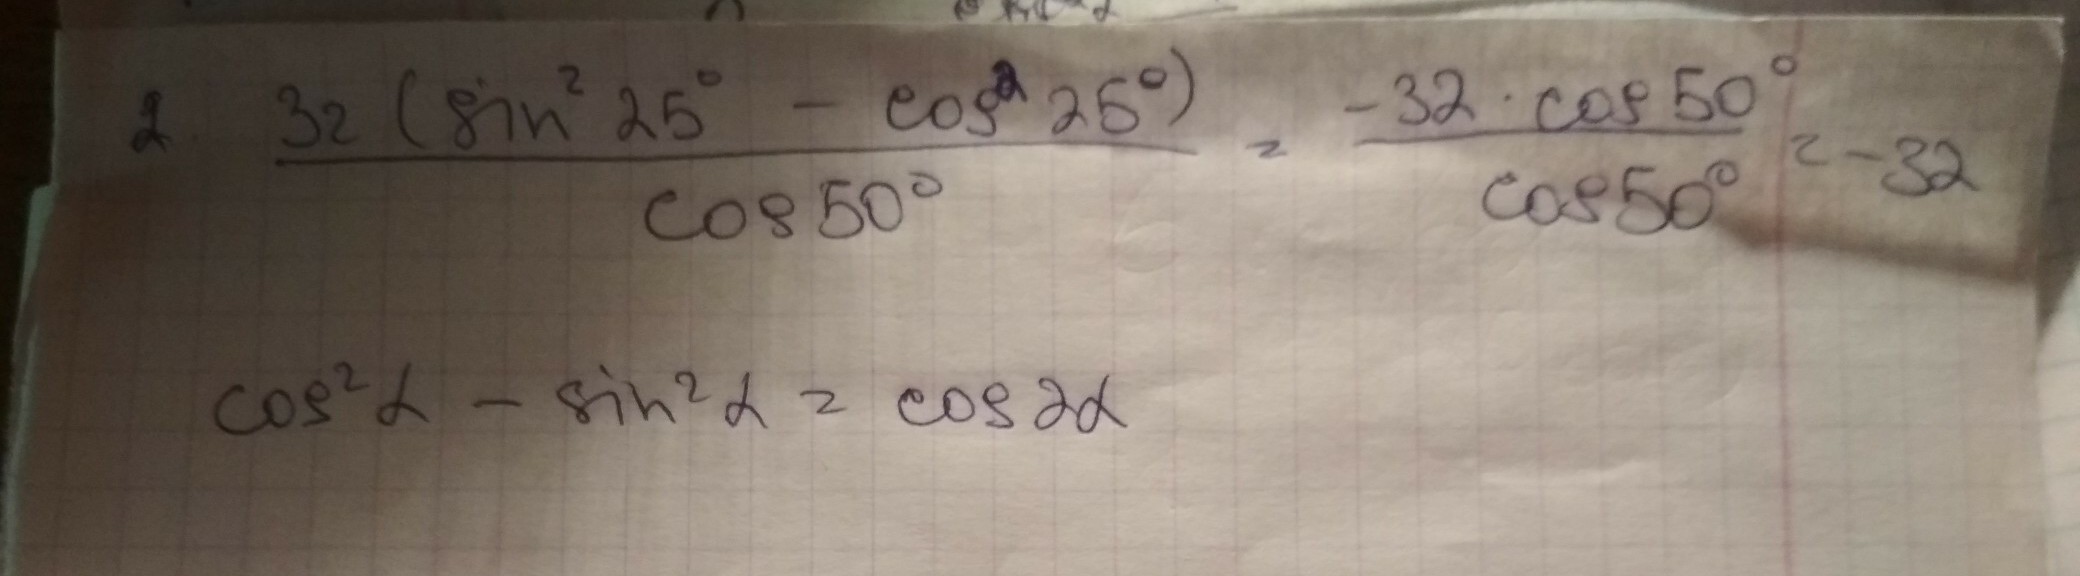 2. 32 (sin² 25° - cos² 25°) / cos 50° = -32 · cos 50° / cos 50° = -32
cos²α - sin²α = cos 2α